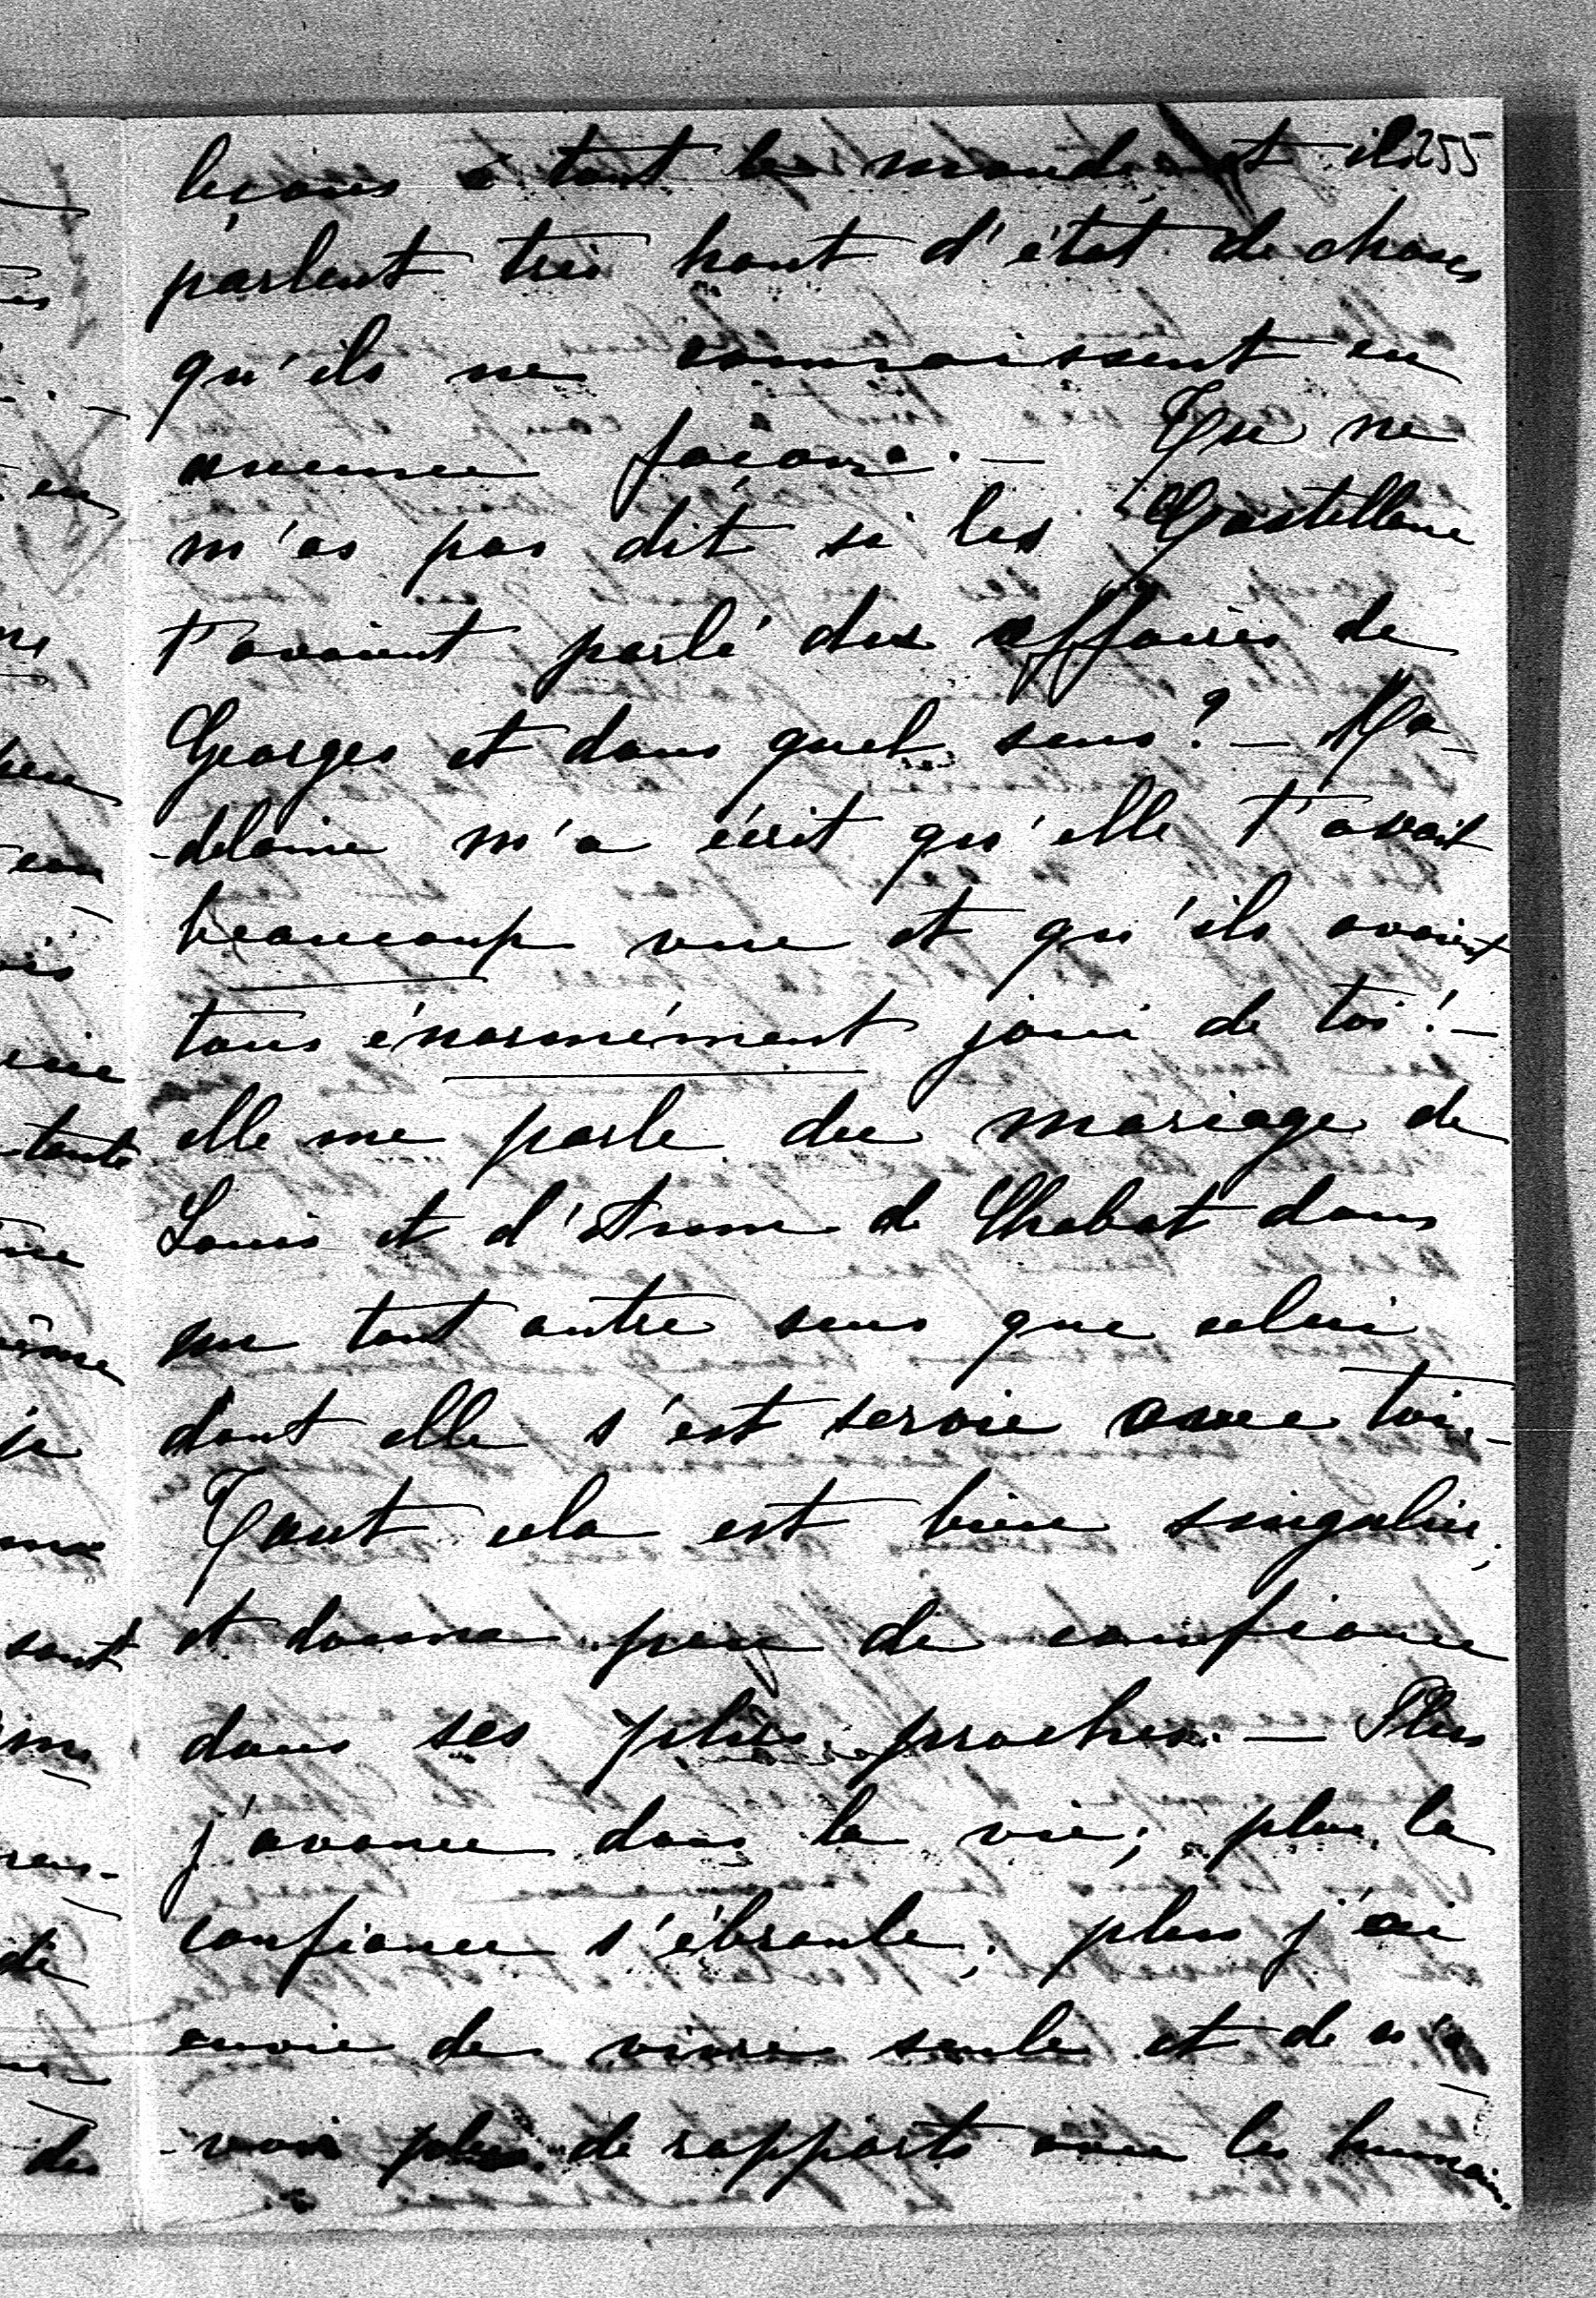 255
leçons à tout le monde, et ils
parlent très haut d'état de choses
qu'ils ne connaissent en
aucune façon. — Tu ne
m'as pas dit si les Castellane
t'avaient parlé des affaires de
Georges et dans quel sens? — Ma-
-delaine m'a écrit qu'elle t'avait
beaucoup vue et qu'ils avaient
tous énormément joui de toi! —
elle me parle du mariage de
Louis et d'Anne de Chabot dans
un tout autre sens que celui
dont elle s'est servie avec toi. —
Tout cela est bien singulier,
et donne peu de confiance
dans ses plus proches. — Plus
j'avance dans la vie; plus la
confiance s'ébranle; plus j'ai
envie de vivre seule et de n'a
-voir plus de rapports avec les humains.